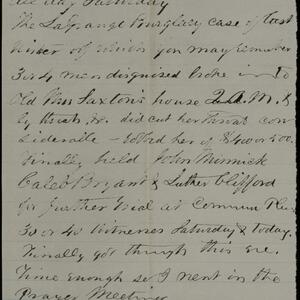 all day Saturday
The LaGrange Burglary case of last
winter of which you may remember
3 or 4 men disguised broke in to
Old Mrs Saxton's house 2 A.M. &
by threats &c did cut her throat con
siderable - robbed her of $400 or 500.
Finally held John Minnick
Caleb Bryant & Luther Clifford
for further trial at Common Pleas
30 or 40 witnesses Saturday & today.
Finally got through this eve.
Time enough so I went in the
Prayer Meeting